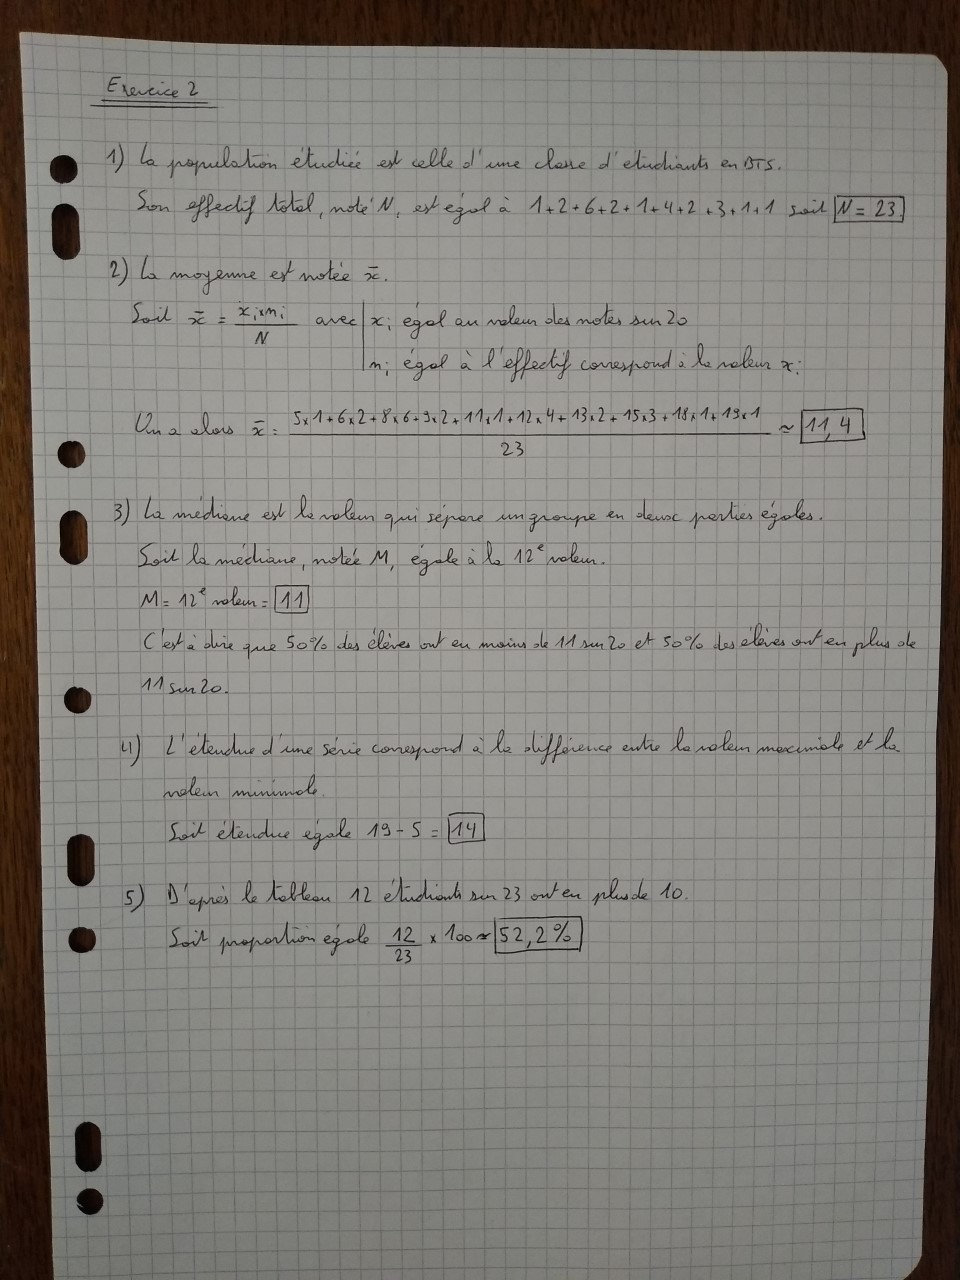 Exercice 2
1) La population étudiée est celle d'une classe d'étudiants en BTS.
Son effectif total, noté N, est égal à 1+2+6+2+1+4+2+3+1+1 soit N = 23
2) La moyenne est notée x̄.
Soit x̄ = xᵢ×nᵢ / N avec | xᵢ égal au valeur des notes sur 20
| nᵢ égal à l'effectif correspond à la valeur xᵢ
On a alors x̄ = 5×1+6×2+8×6+9×2+11×1+12×4+13×2+15×3+18×1+19×1 / 23 ≈ 11,4
3) La médiane est la valeur qui sépare un groupe en deux parties égales.
Soit la médiane, notée M, égale à la 12e valeur.
M = 12e valeur = 11
C'est à dire que 50% des élèves ont eu moins de 11 sur 20 et 50% des élèves ont eu plus de
11 sur 20.
4) L'étendue d'une série correspond à la différence entre la valeur maximale et la
valeur minimale.
Soit étendue égale 19 - 5 = 14
5) D'après le tableau 12 étudiants sur 23 ont eu plus de 10.
Soit proportion égale 12/23 × 100 ≈ 52,2%